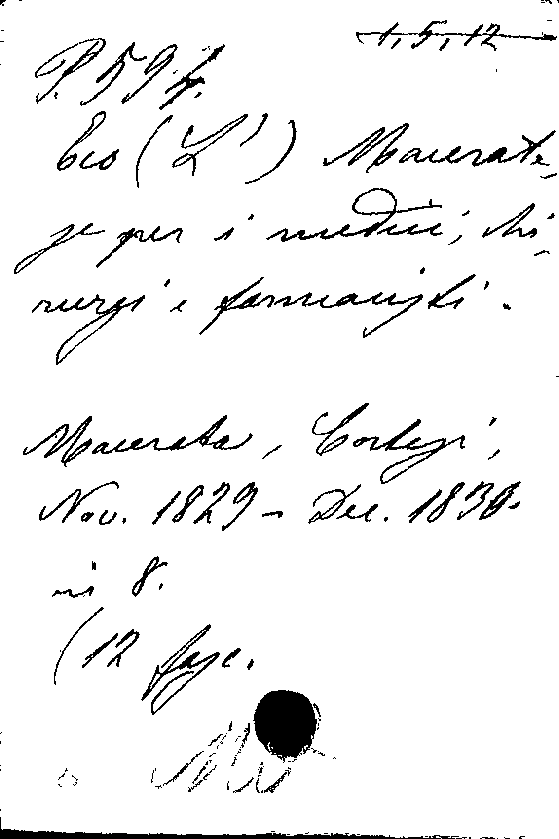 1,5,12
P. 594.
Eco (L') Macerate-
se per i medici, chi-
rurgi e farmacisti.
Macerata, Cortesi,
Nov. 1829 - Dec. 1830.
in 8.
(12 fasc.